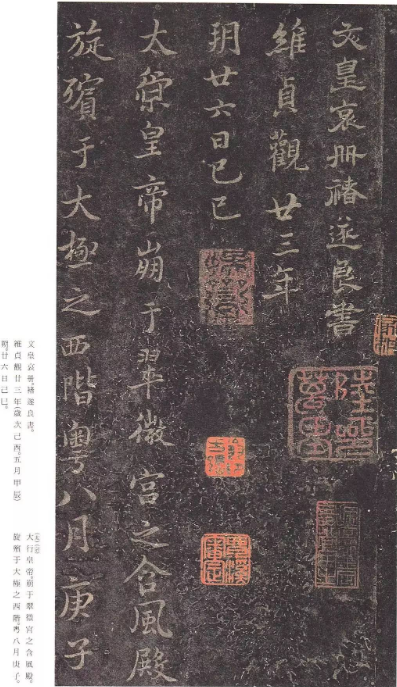 文皇哀冊褚遂良書
維貞觀廿三年
朔廿六日己巳
太皇帝崩于翠微宮之含風殿
旋殯于大極之西階粵八月庚子
文皇哀册。褚遂良書。
維貞觀廿三年(歲次己酉。五月甲辰)
朔。廿六日己巳。
大行皇帝。崩于翠微宮之含風殿。
旋殯于大極之西階。粵八月庚子。